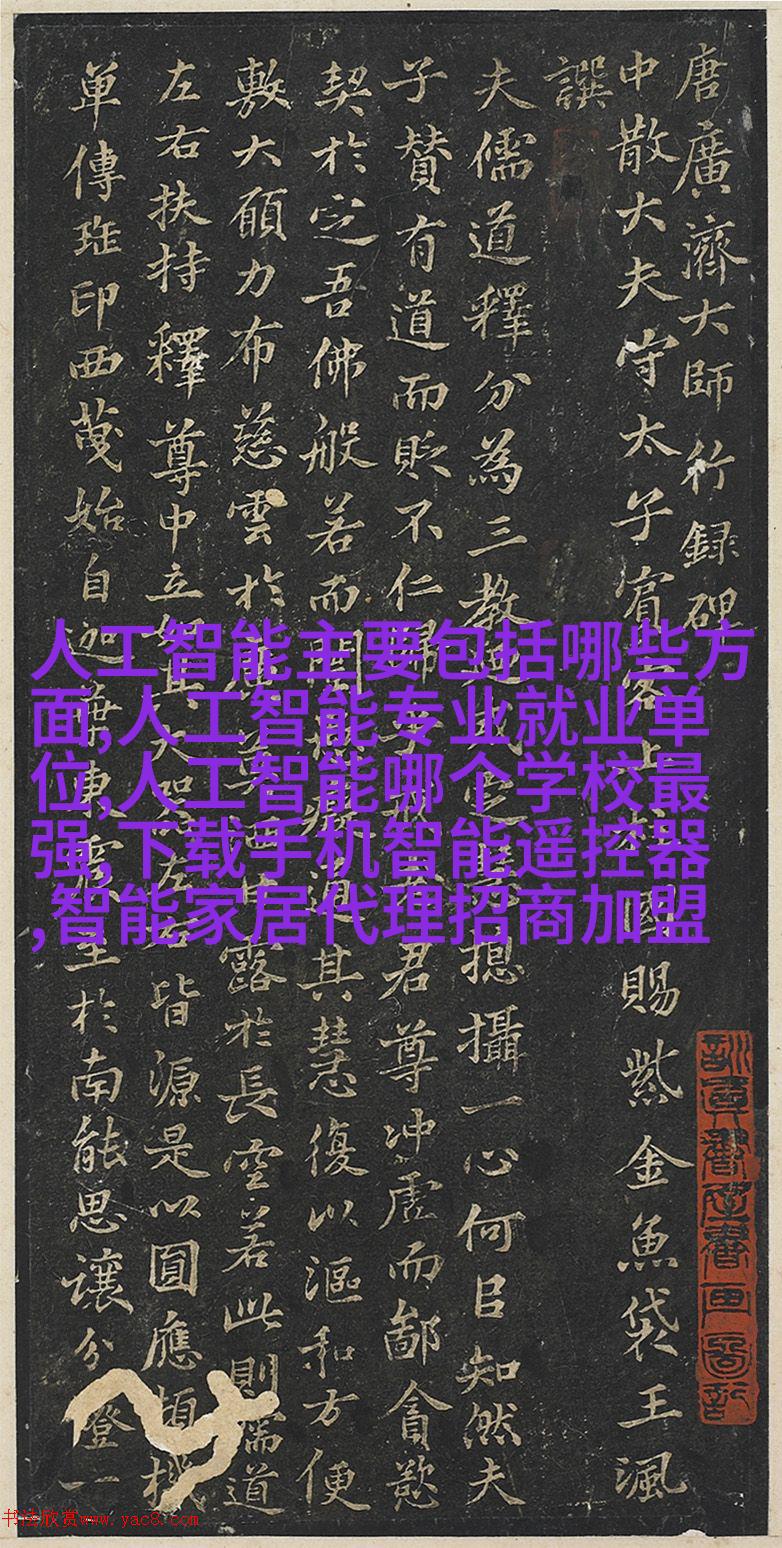 唐廣濟大師行録碑
中散大夫守太子賓客上柱國賜紫金魚袋王渢
譔
夫儒道釋分為三教捴攝一心何㠯知然夫
子賛有道而貶不仁歸君尊冲虛而鄙貪慾
契於㝎吾佛般若而開其慧復以漚和方便
敷大願力布慈雲於露於長空若此則儒道
左右扶持釋尊中立皆源是以圓應頓機
單傳印西始自迦葉東至於南能思讓分燈一
人工智能主要包括哪些方
面,人工智能专业就业单
位,人工智能哪个学校最
强,下载手机智能遥控器
,智能家居代理招商加盟
书法欣赏www.yac8.com